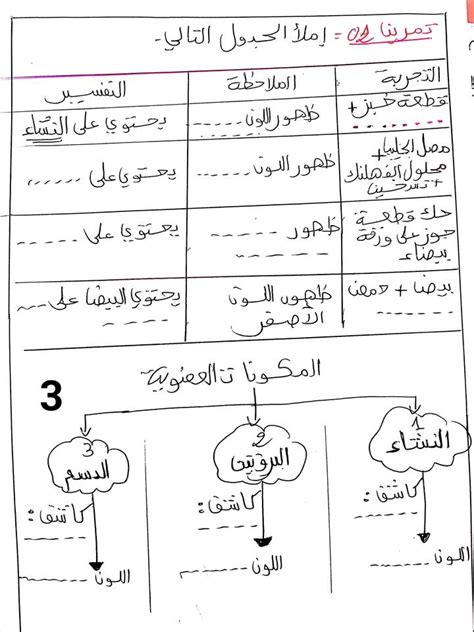 تمرين 01 = إملأ الجدول التالي.-
التجربة الملاحظة التفسير
قطعة خبز + ......... ظهور اللون ------ يحتوي على النشاء
مصل الحليب + محلول الفهلنك + تسخين ظهور اللون ------ يحتوي على ------
حك قطعة جوز على ورقة بيضاء ظهور ------ يحتوي على ------
بيض + حمض ------ ظهور اللون الأصفر يحتوي البيض على ------
المكونات العضوية
3
1 النشاء
2 البروتين
3 الدسم
كاشف: ------
كاشف: ------
كاشف: ------
اللون ------
اللون ------
اللون ------